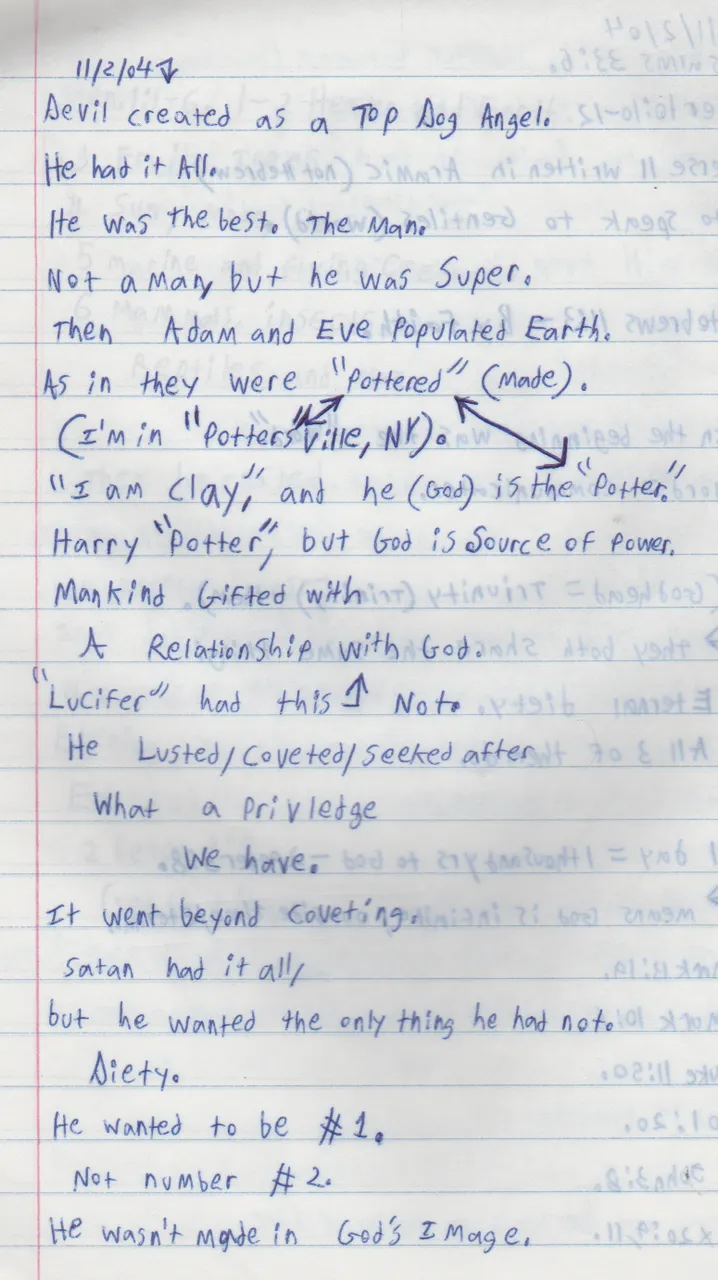 11/2/04↓
Devil created as a Top Dog Angel.
He had it All.
He was the best. The Man.
Not a Man, but he was Super.
Then Adam and Eve Populated Earth.
As in they were "Pottered" (Made).
(I'm in "Potters"ville, NY).
"I am Clay," and he (God) is the "Potter."
Harry "Potter," but God is Source of Power.
Mankind Gifted with
A Relationship with God.
"Lucifer" had this ↑ Not.
He Lusted/Coveted/Seeked after
What a Privledge
We have.
It went beyond Coveting.
Satan had it all,
but he wanted the only thing he had not.
Diety.
He wanted to be #1.
Not number #2.
He wasn't made in God's Image.